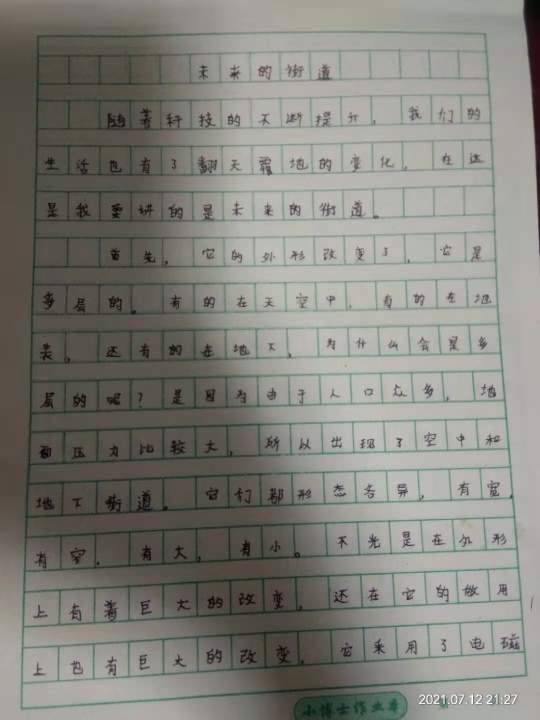 未来的街道
随着科技的不断提升,我们的
生活也有了翻天覆地的变化,在这
是我要讲的是未来的街道。
首先,它的外形改变了,它是
多层的。有的在天空中,有的在地
表,还有的在地下,为什么会是多
层的呢?是因为由于人口众多,地
面压力比较大,所以出现了空中和
地下街道。它们都形态各异,有宽,
有窄,有大,有小。不光是在外形
上有着巨大的改变,还在它的做用
上也有巨大的改变,它采用了电磁
小博士作业本
2021.07.12 21:27